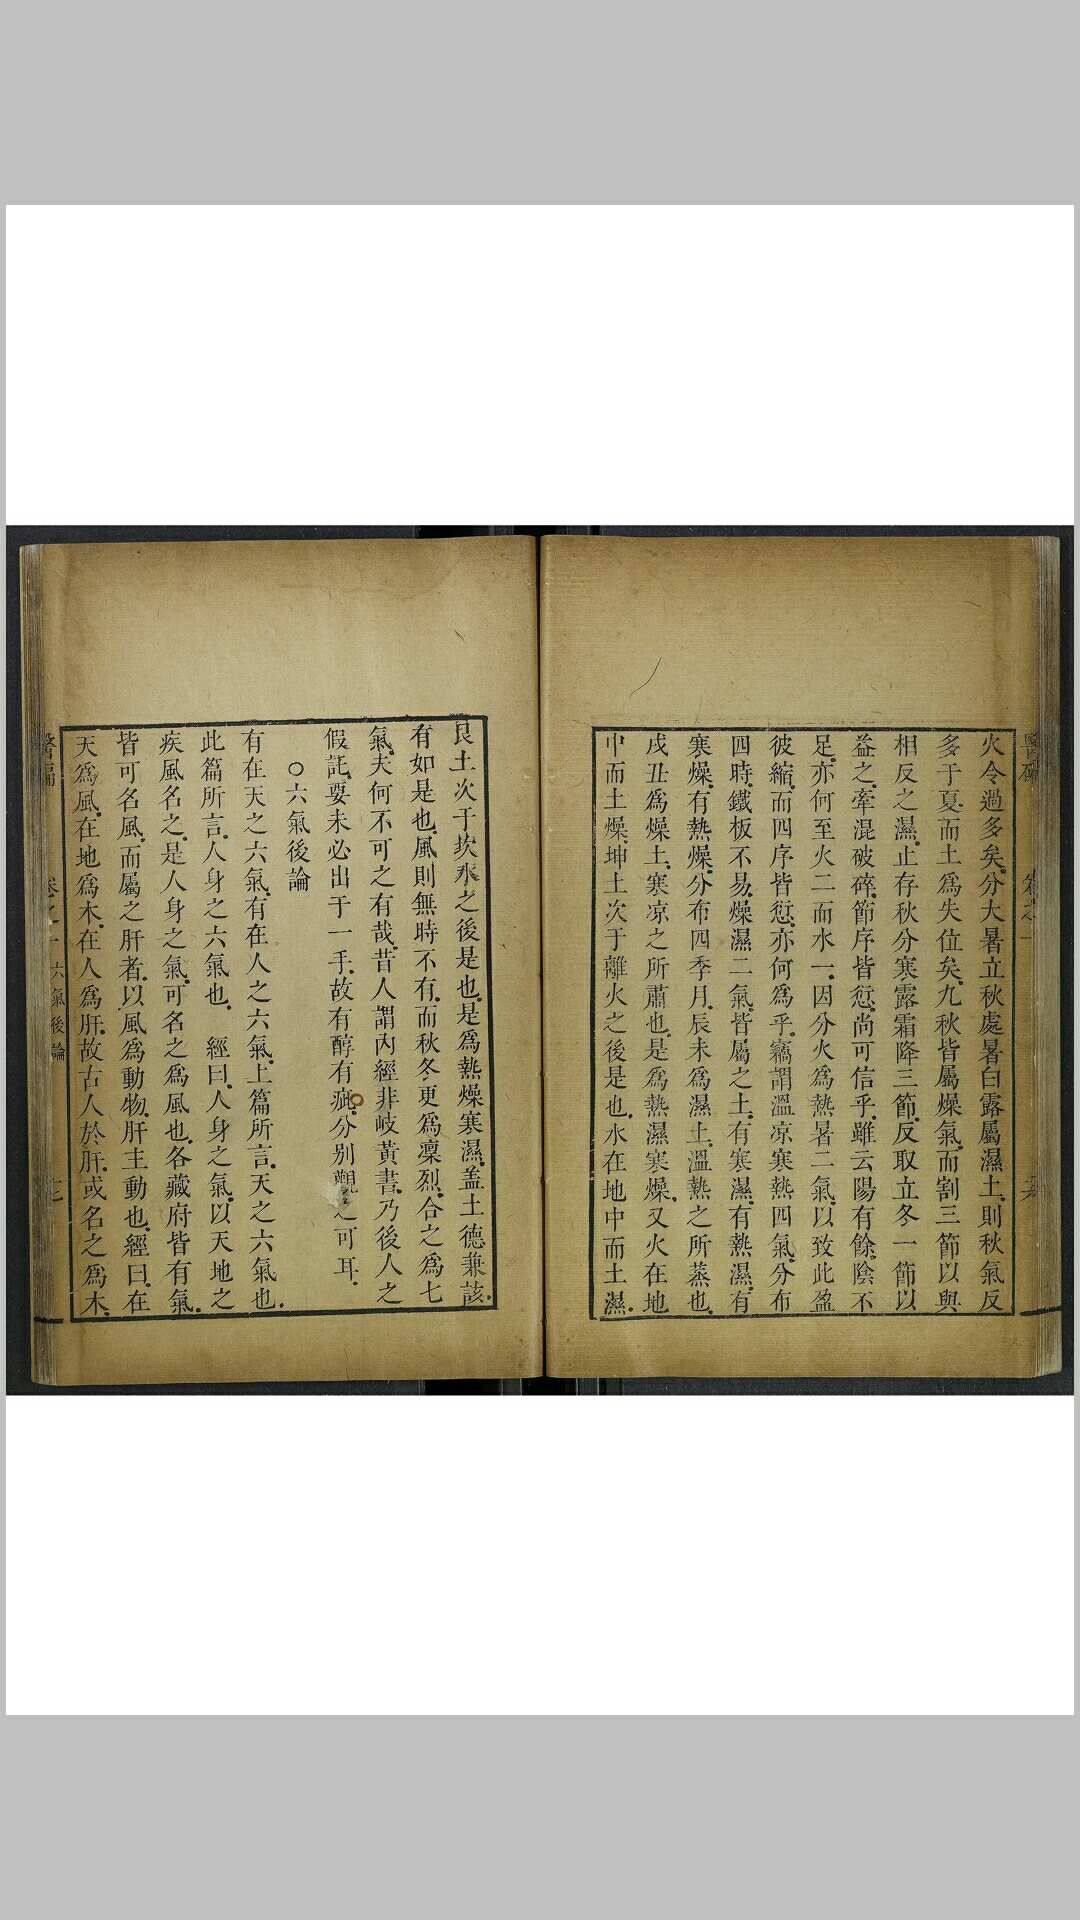 火令過多矣分大暑立秋處暑白露屬濕土則秋氣反
多于夏而土爲失位矣九秋皆屬燥氣而割三節以與
相反之濕止存秋分寒露霜降三節反取立冬一節以
益之牽混破碎節序皆愆尚可信乎雖云陽有餘陰不
足亦何至火二而水一因分火爲熱暑二氣以致此盈
彼縮而四序皆愆亦何爲乎竊謂溫凉寒熱四氣分布
四時鐵板不易燥濕二氣皆屬之土有寒濕有熱濕有
寒燥有熱燥分布四季月辰未爲濕土溫熱之所蒸也
戌丑爲燥土寒凉之所肅也是爲熱濕寒燥又火在地
中而土燥坤土次于離火之後是也水在地中而土濕
艮土次于坎水之後是也是爲熱燥寒濕葢土德兼該
有如是也風則無時不有而秋冬更爲凜烈合之爲七
氣夫何不可之有哉昔人謂內經非岐黃書乃後人之
假託要未必出于一手故有醇有疵分別觀之可耳
○六氣後論
有在天之六氣有在人之六氣上篇所言天之六氣也
此篇所言人身之六氣也 經曰人身之氣以天地之
疾風名之是人身之氣可名之爲風也各藏府皆有氣
皆可名風而屬之肝者以風爲動物肝主動也經曰在
天爲風在地爲木在人爲肝故古人於肝或名之爲木
卷之一 六氣後論